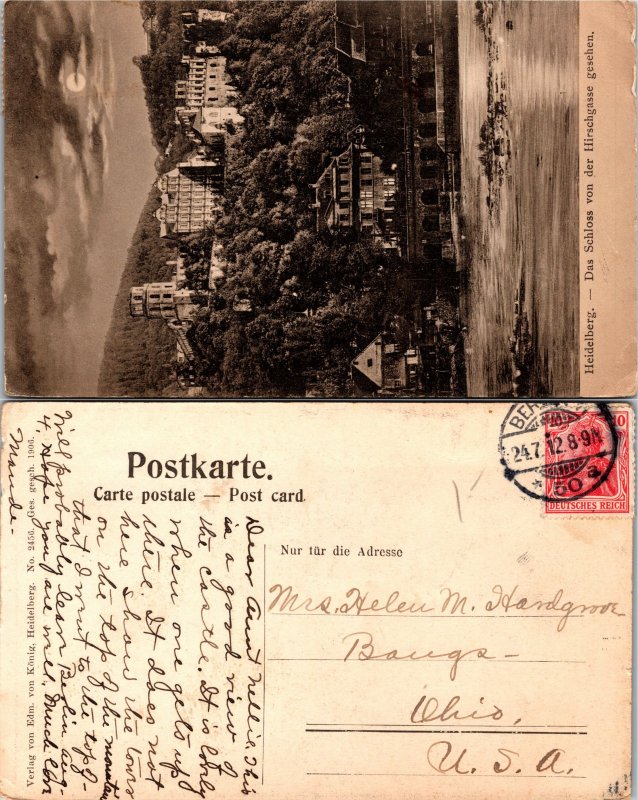 Heidelberg. — Das Schloss von der Hirschgasse gesehen.
Postkarte.
Carte postale — Post card.
BER
24.7.12.8-9N
* 50 a
10
DEUTSCHES REICH
Nur für die Adresse
Mrs. Helen M. Hardgrove
Bangs-
Ohio,
U. S. A.
Dear Aunt Nellie. This
is a good view of
the castle. It is lovely
when one gets up
there. It does not
here show the tower
on the top of the mountain
that I went to the top of-
Will probably leave Berlin Aug-
4. Hope you are well. Much love
Maude-
Verlag von Edm. von König, Heidelberg. No. 2456. Ges. gesch. 1906.